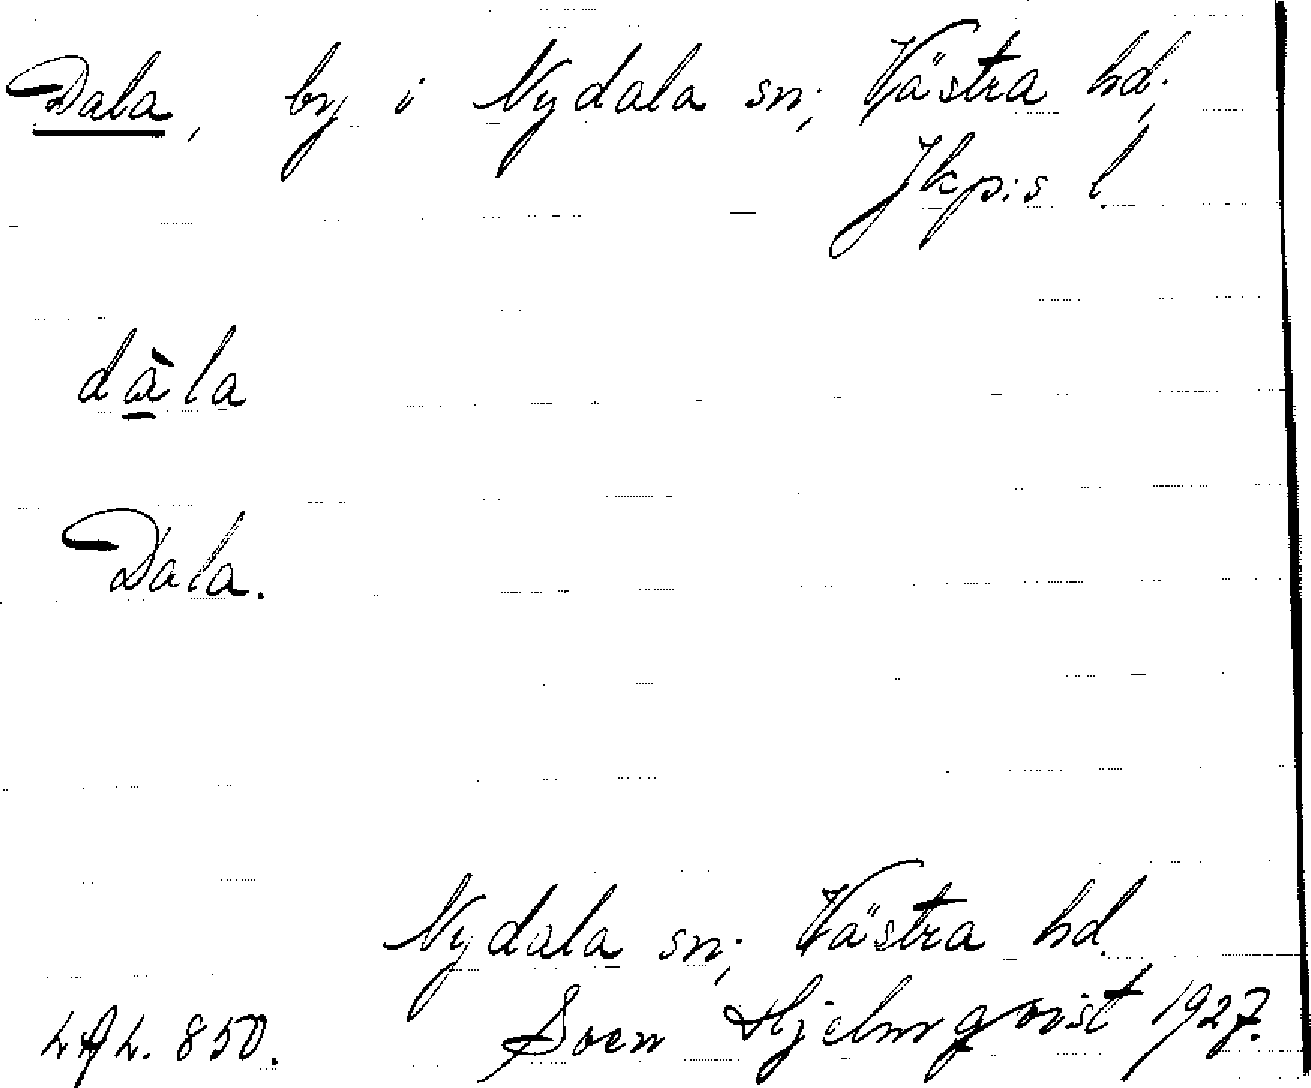 Dala, by i Nydala sn; Västra hd;
Jkpis l.
dàla
Dala.
Nydala sn; Västra hd
LAL. 850. Sven Hjelmqvist 1927.